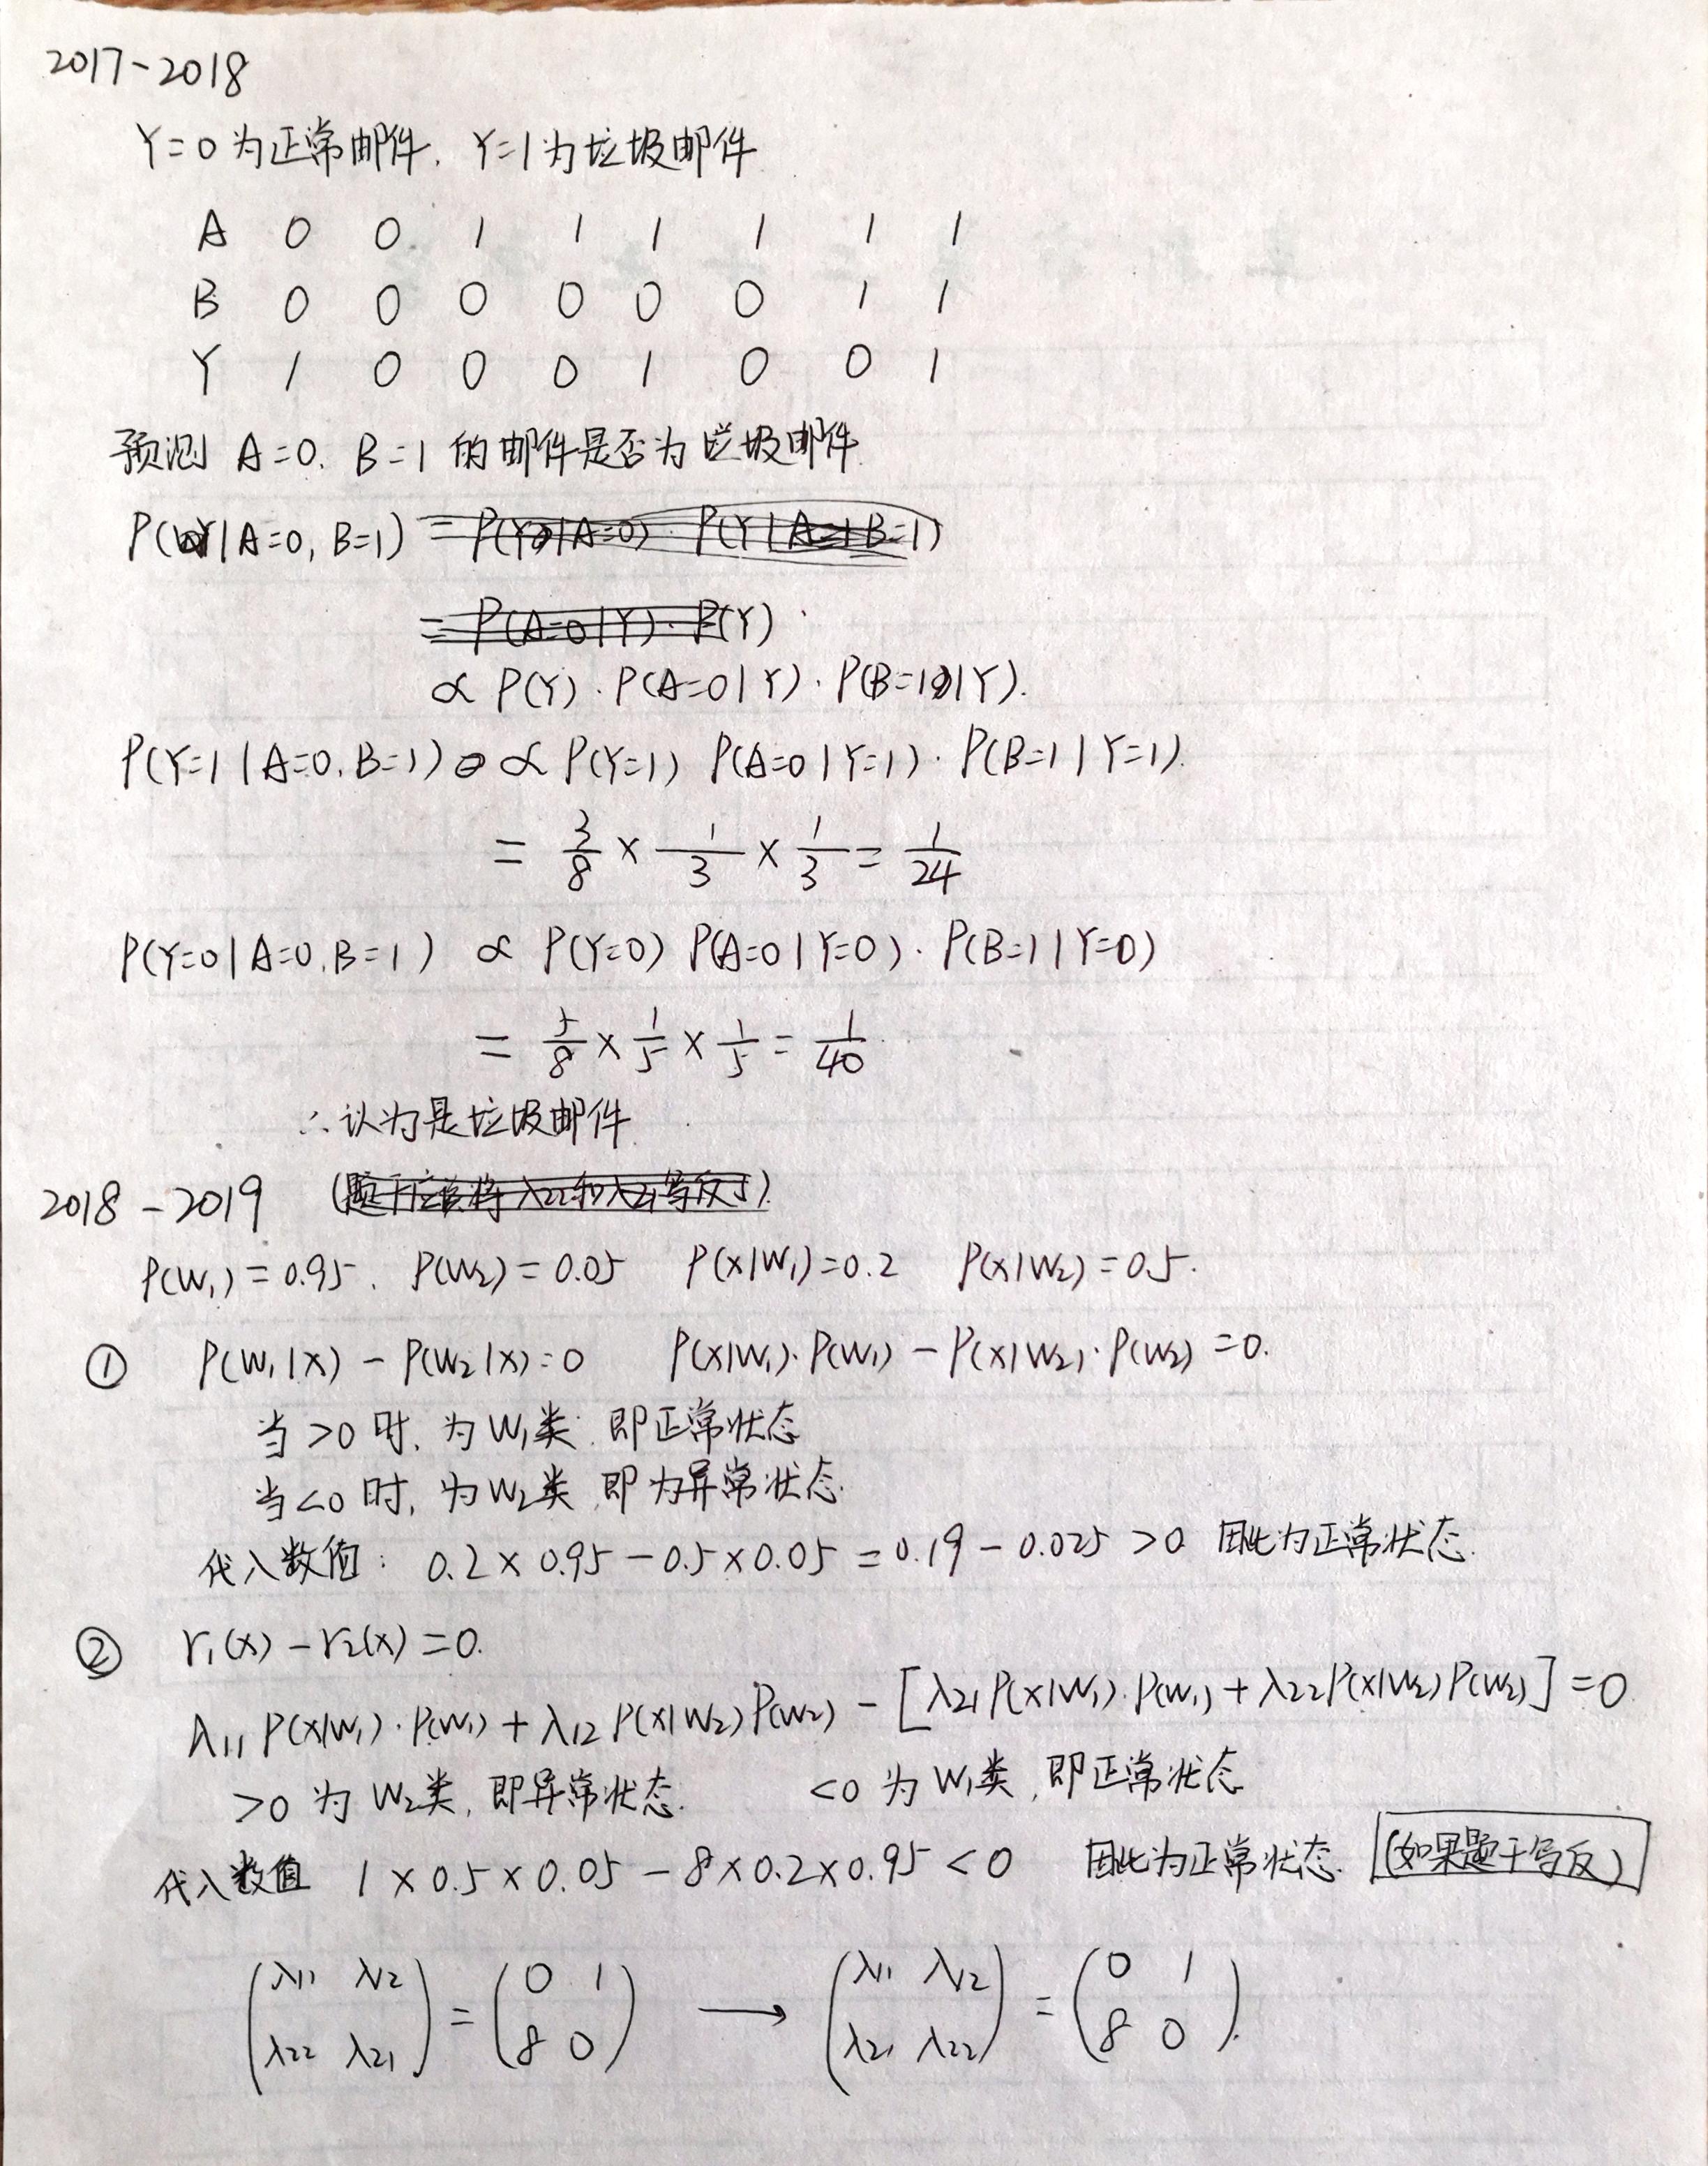 2017-2018
Y=0为正常邮件, Y=1为垃圾邮件
A 0 0 1 1 1 1 1 1
B 0 0 0 0 0 0 1 1
Y 1 0 0 0 1 0 0 1
预测 A=0, B=1 的邮件是否为垃圾邮件
P(Y|A=0, B=1) = P(Y|A=0) · P(Y|B=1)
= P(A=0|Y) · P(Y)
∝ P(Y) · P(A=0|Y) · P(B=1|Y).
P(Y=1|A=0, B=1) ∝ P(Y=1) P(A=0|Y=1) · P(B=1|Y=1).
= 3/8 × 1/3 × 1/3 = 1/24
P(Y=0|A=0, B=1) ∝ P(Y=0) P(A=0|Y=0) · P(B=1|Y=0)
= 5/8 × 1/5 × 1/5 = 1/40
∴认为是垃圾邮件
2018-2019 (题干应该将λ22和λ21写反了).
P(W₁)=0.95, P(W₂)=0.05 P(x|W₁)=0.2 P(x|W₂)=0.5.
① P(W₁|x) - P(W₂|x)=0 P(x|W₁)·P(W₁) - P(x|W₂)·P(W₂) =0.
当>0时, 为W₁类, 即正常状态
当<0时, 为W₂类, 即为异常状态.
代入数值: 0.2×0.95-0.5×0.05=0.19-0.025>0 因此为正常状态.
② r₁(x)-r₂(x)=0.
λ11 P(x|W₁)·P(W₁)+λ12 P(x|W₂)P(W₂) - [λ21 P(x|W₁)·P(W₁)+λ22 P(x|W₂)P(W₂)]=0
>0 为W₂类, 即异常状态. <0 为W₁类, 即正常状态
代入数值 1×0.5×0.05-8×0.2×0.95<0 因此为正常状态. (如果题干写反)
(λ11 λ12 = (0 1 → (λ11 λ12 = (0 1
λ22 λ21) 8 0) λ21 λ22) 8 0).